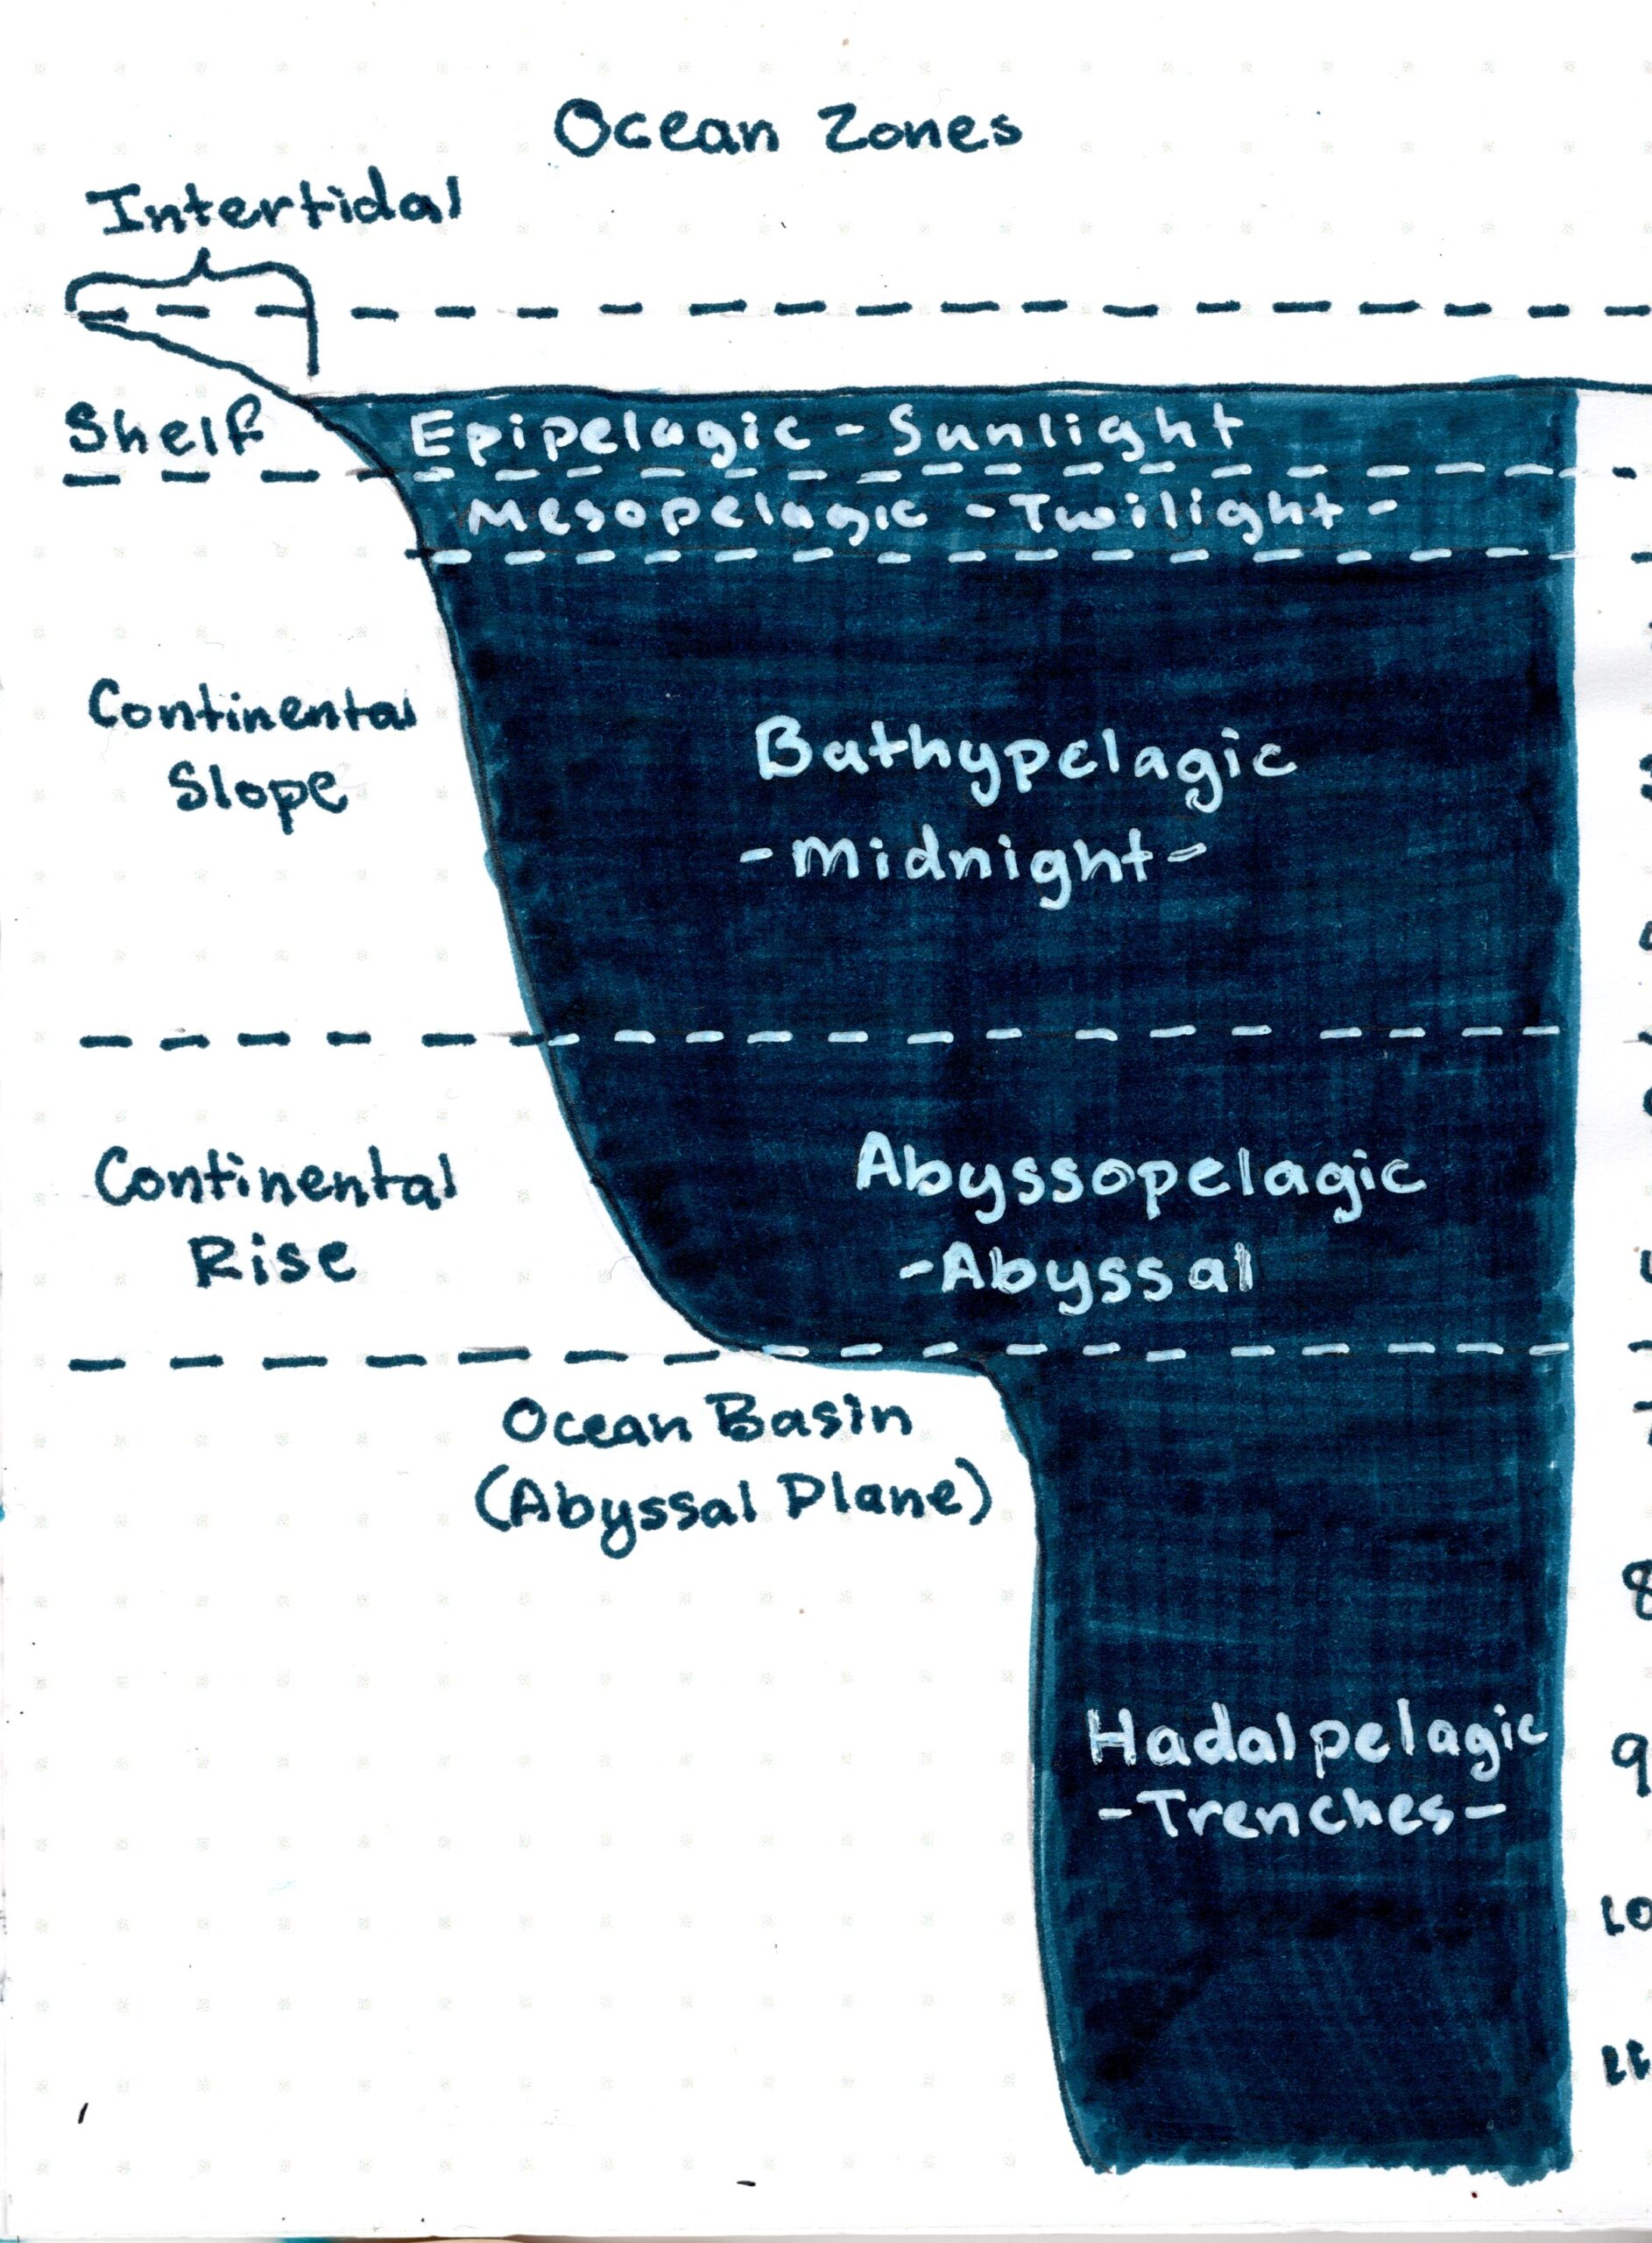 Ocean Zones
Intertidal
Shelf
Epipelagic - Sunlight
Mesopelagic - Twilight -
Continental
Slope
Bathypelagic
- Midnight -
Continental
Rise
Abyssopelagic
- Abyssal
Ocean Basin
(Abyssal Plane)
8
Hadalpelagic
- Trenches -
9
10
11